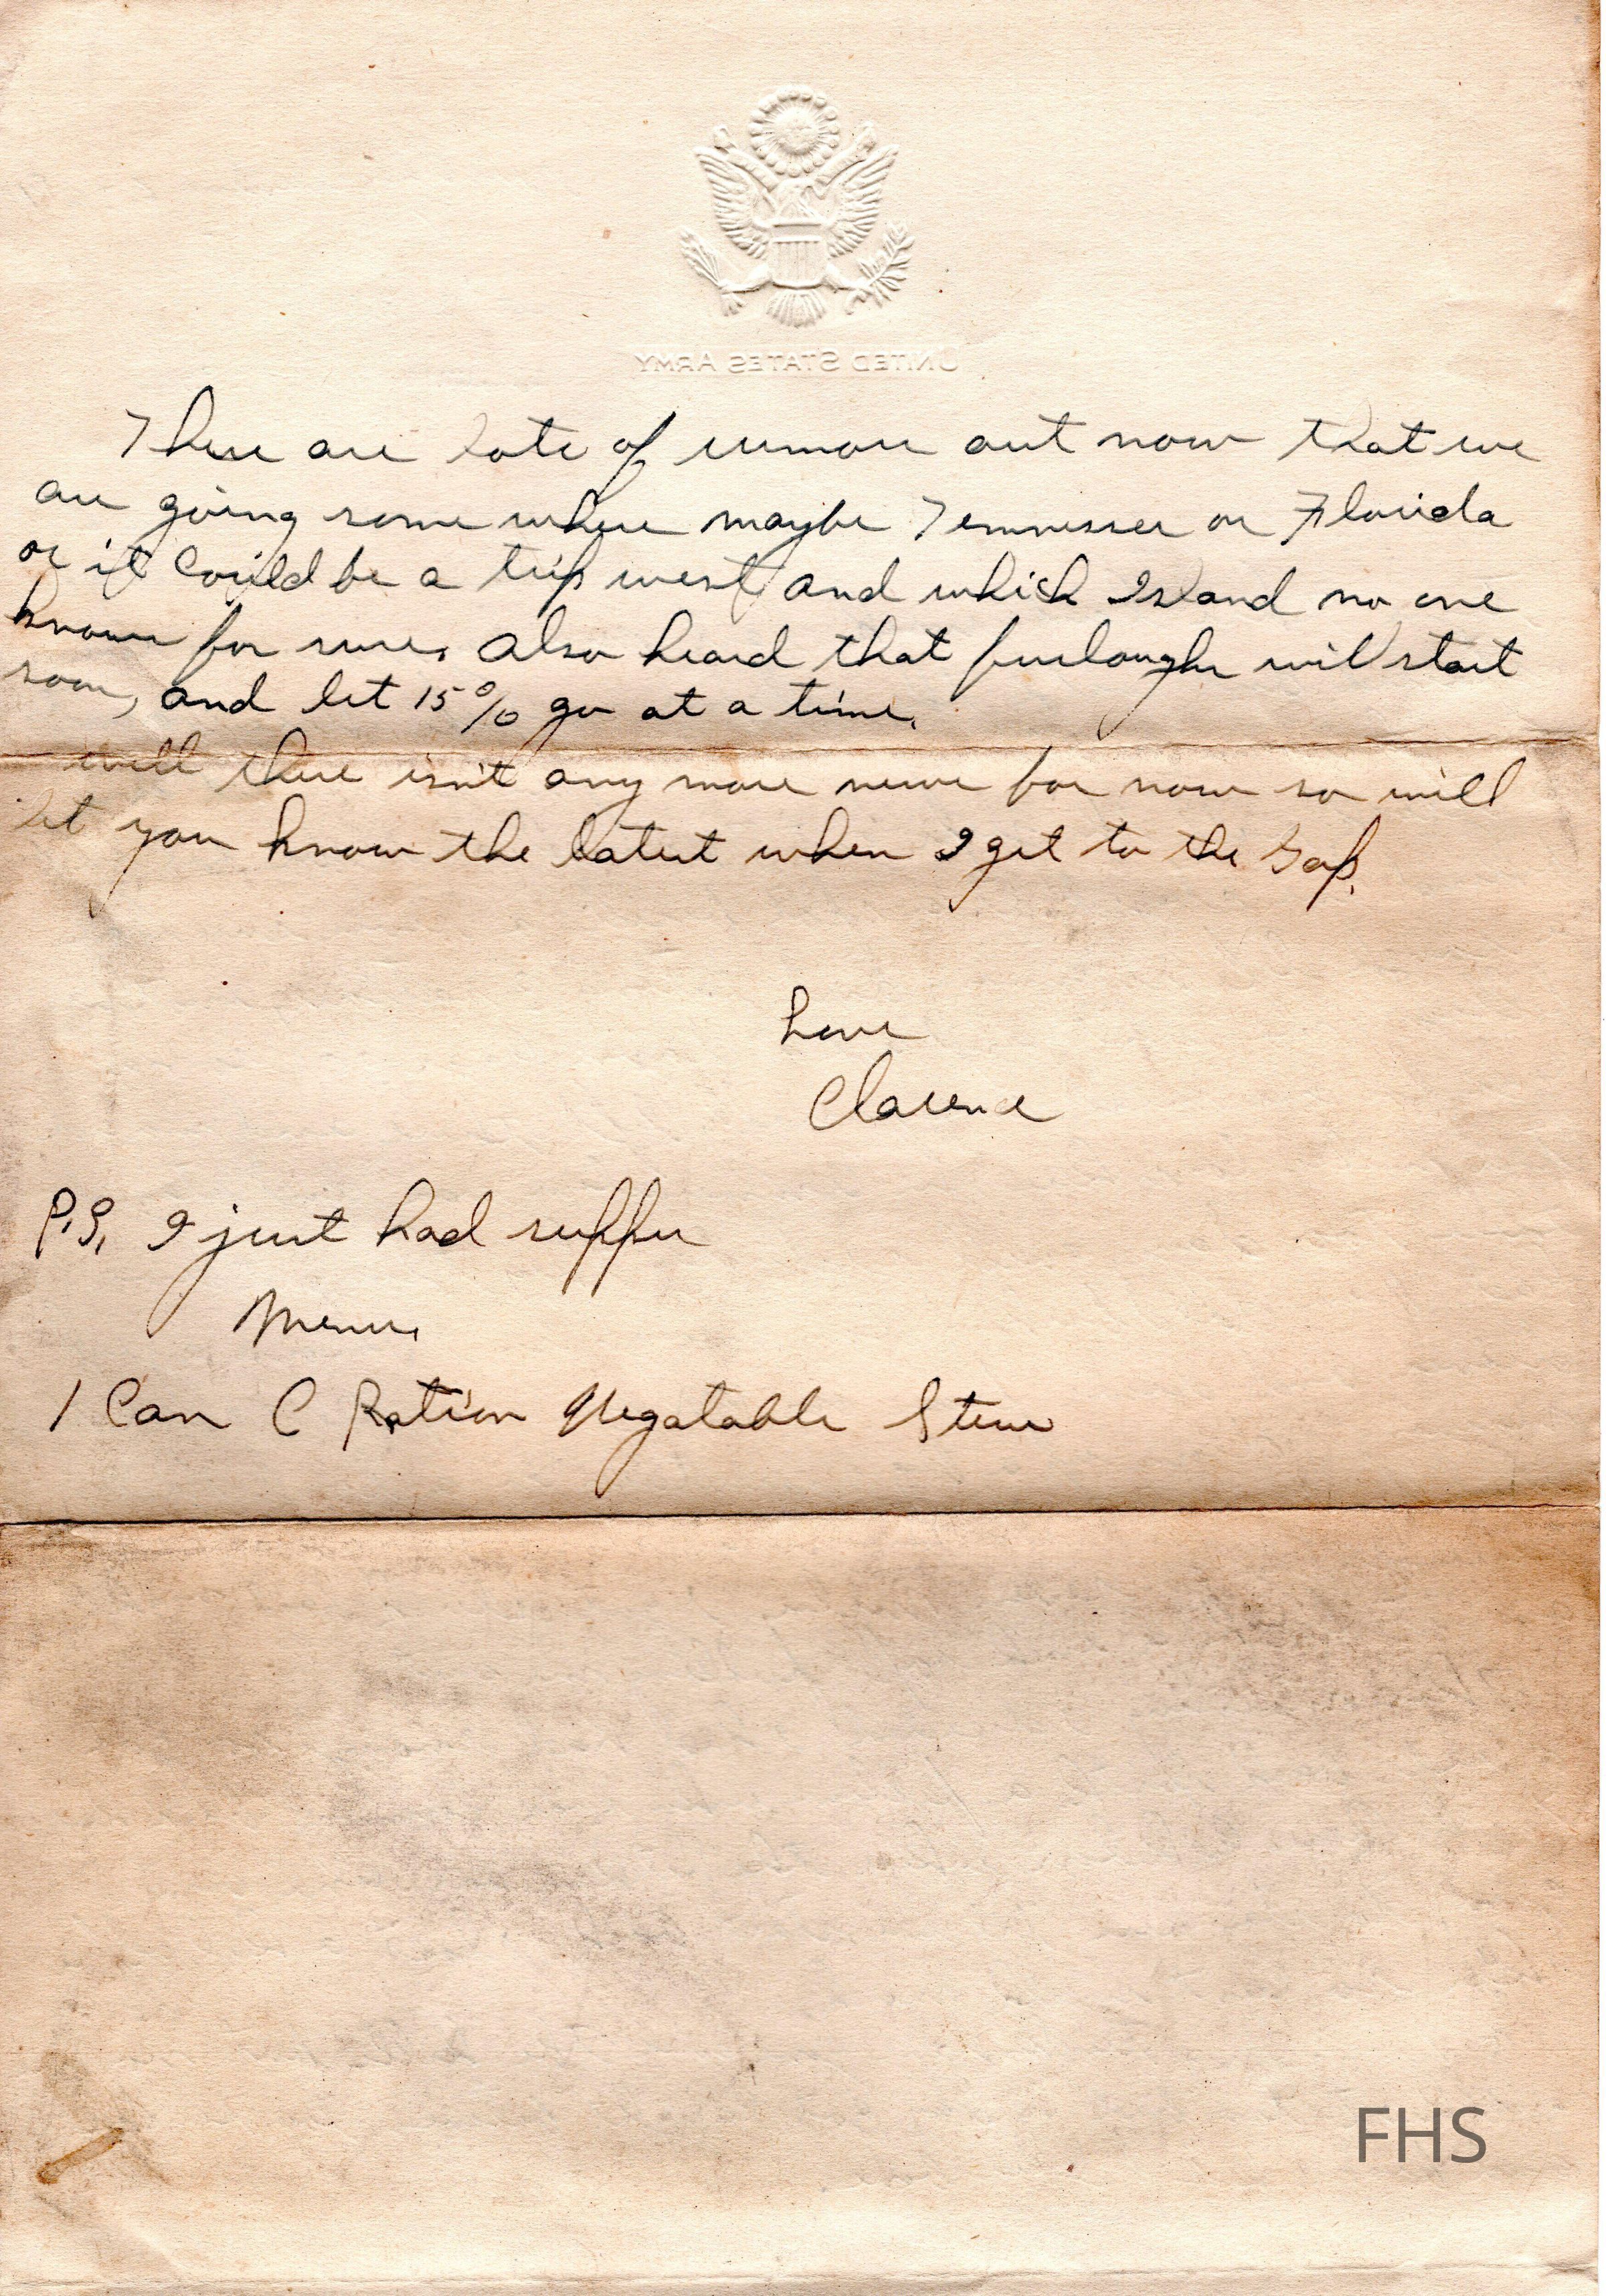 UNITED STATES ARMY
There are lots of rumors out now that we
are going somewhere maybe Tennessee or Florida
or it could be a trip west and which Island no one
knows for sure. Also heard that furloughs will start
soon, and let 15% go at a time.
Well there isn't any more news for now so will
let you know the latest when I get to the Gap.
Love
Clarence
P.S. I just had supper
Menu.
1 Can C Ration Vegatable Stew
FHS